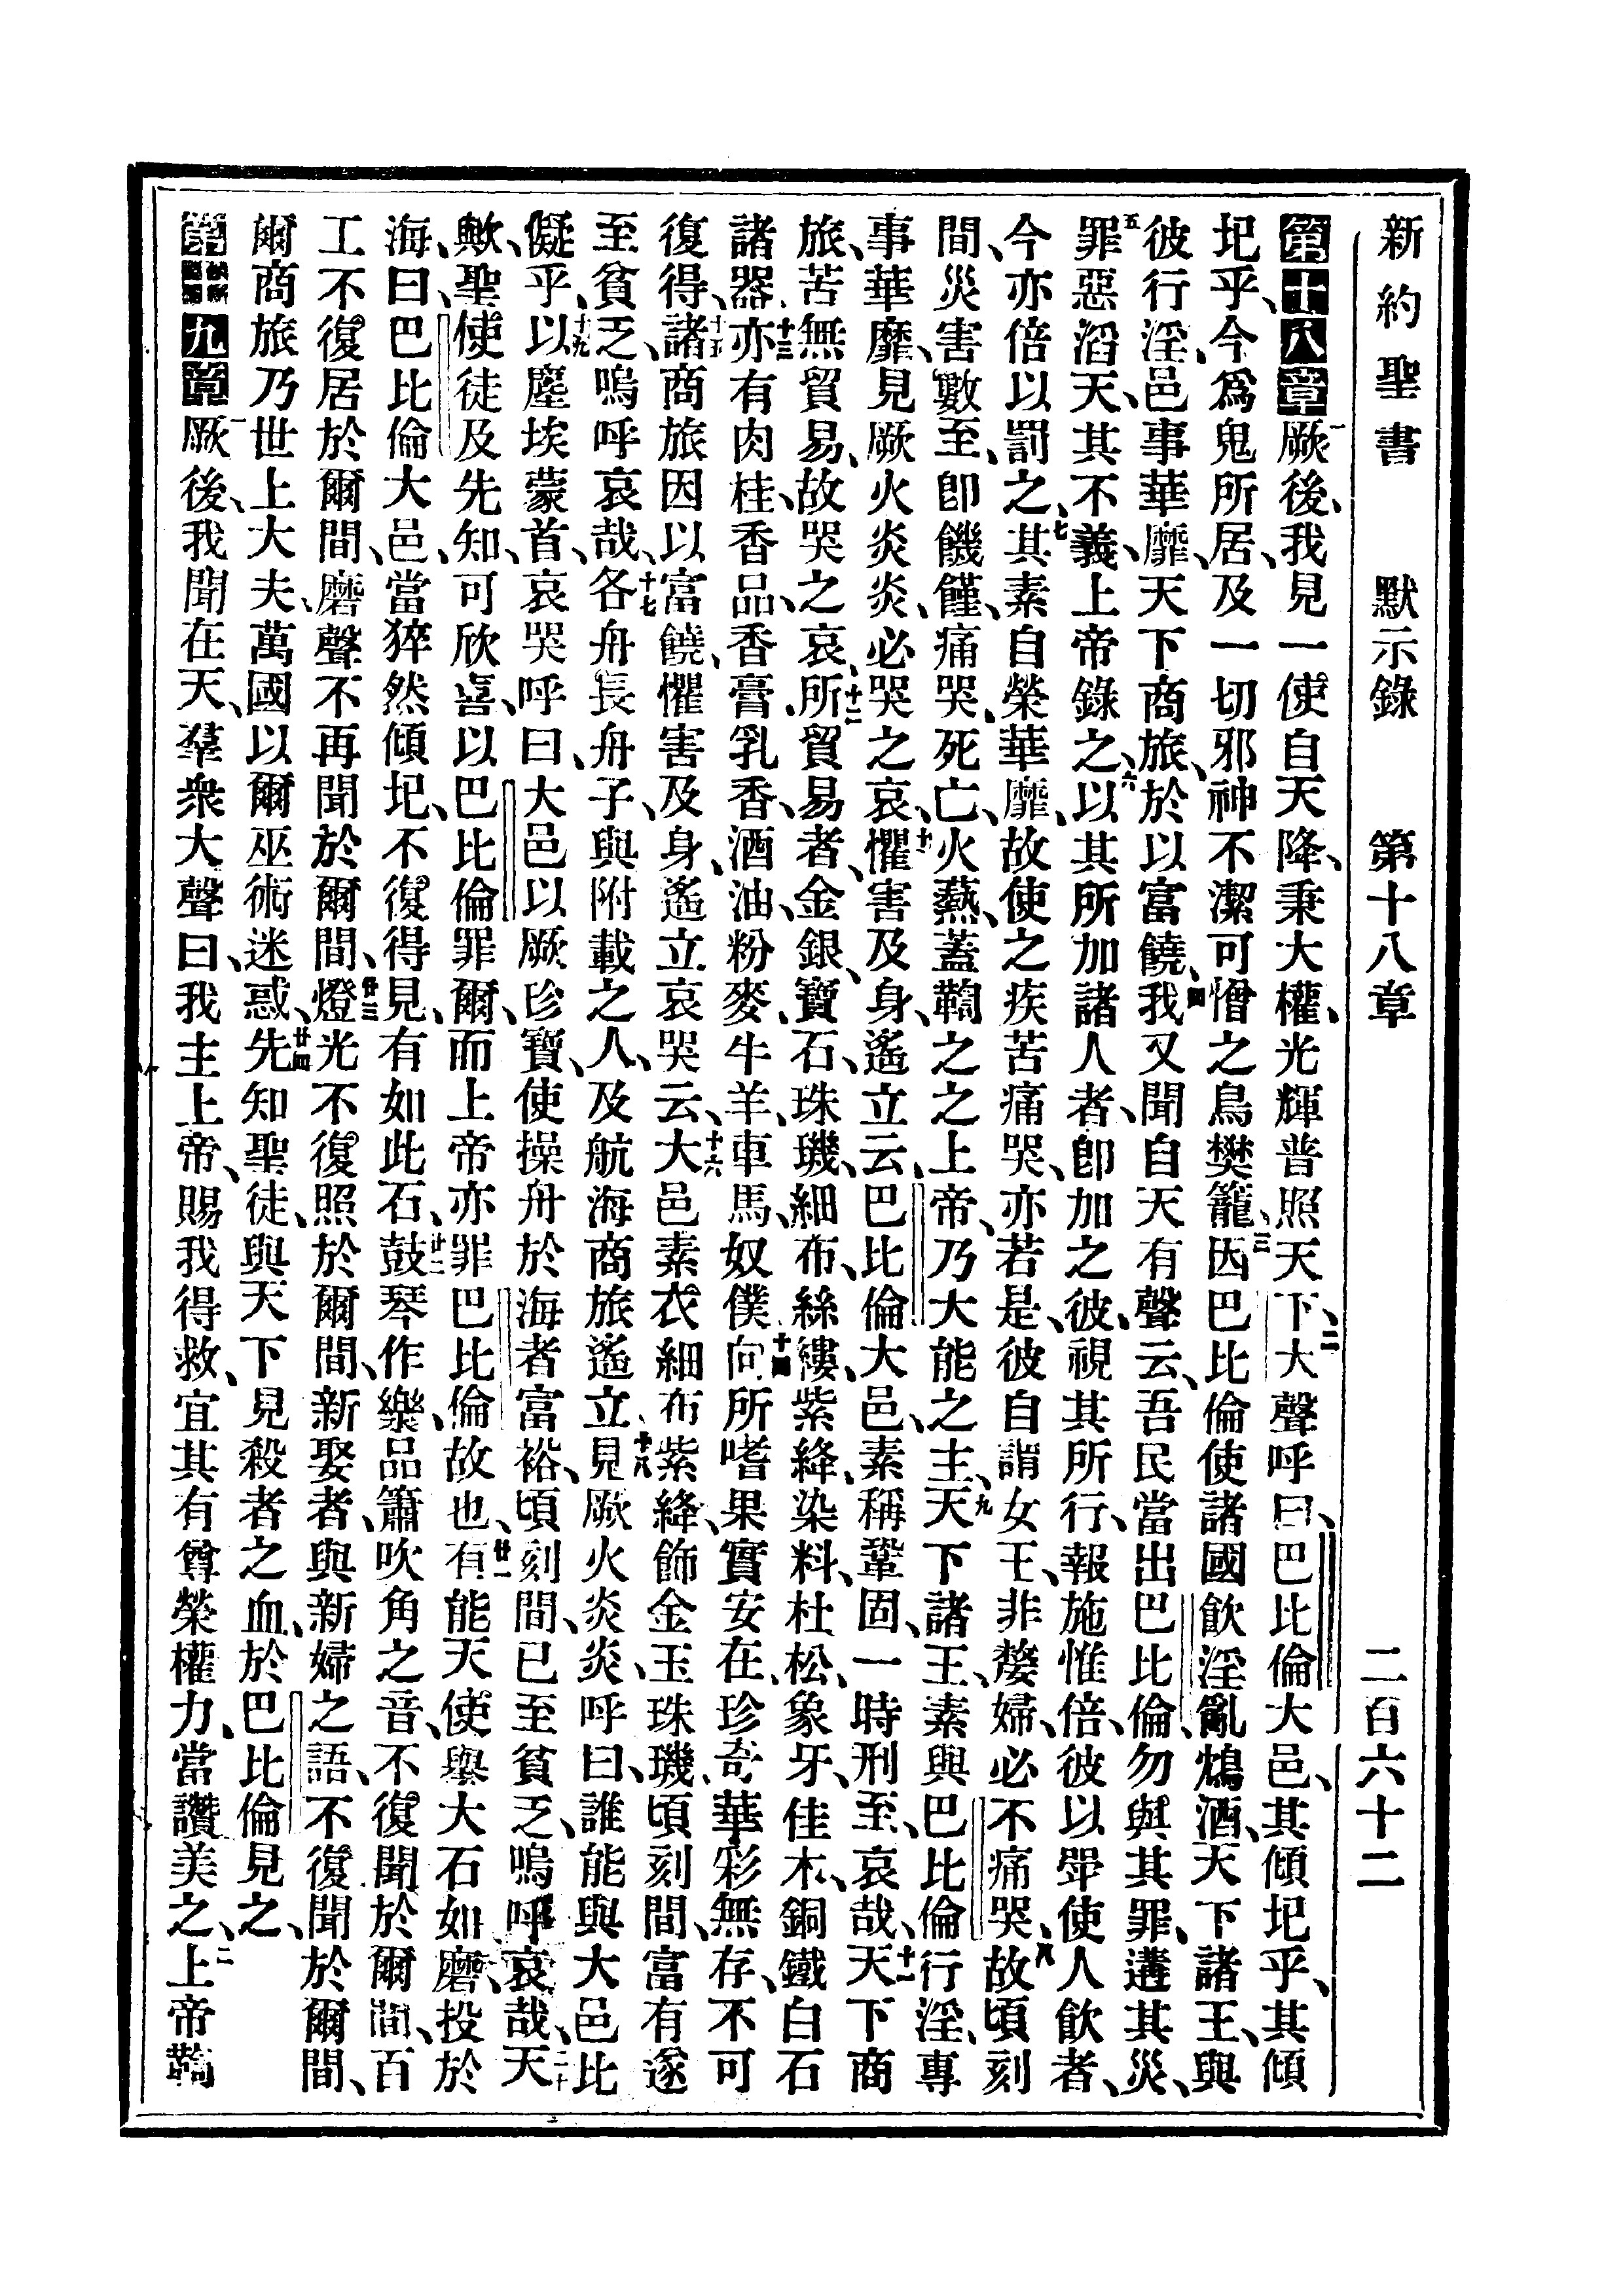 新約聖書 默示錄 第十八章 二百六十二
第十八章一厥後、我見一使自天降、秉大權、光輝普照天下、二大聲呼曰、巴比倫大邑、其傾圮乎、其傾
圮乎、今爲鬼所居、及一切邪神不潔可憎之鳥樊籠、三因巴比倫使諸國飲淫亂鴆酒、天下諸王、與
彼行淫、邑事華靡、天下商旅、於以富饒、四我又聞自天有聲云、吾民當出巴比倫、勿與其罪、遘其災、
五罪惡滔天、其不義、上帝錄之、六以其所加諸人者、卽加之彼、視其所行、報施惟倍、彼以斝使人飲者、
今亦倍以罰之、七其素自榮華靡、故使之疾苦痛哭、亦若是、彼自謂女王、非嫠婦、必不痛哭、八故頃刻
間、災害數至、卽饑饉、痛哭、死亡、火爇、蓋鞫之之上帝、乃大能之主、九天下諸王、素與巴比倫行淫、專
事華靡、見厥火炎炎、必哭之哀、十懼害及身、遙立云、巴比倫大邑、素稱鞏固、一時刑至、哀哉、十一天下商
旅、苦無貿易、故哭之哀、十二所貿易者、金銀、寶石、珠璣、細布、絲縷、紫絳、染料、杜松、象牙、佳木、銅鐵白石
諸器、十三亦有肉桂、香品、香膏、乳香、酒油、粉麥、牛羊、車馬、奴僕、十四向所嗜果實安在、珍奇華彩無存、不可
復得、十五諸商旅因以富饒、懼害及身、遙立哀哭云、十六大邑素衣細布紫絳、飾金玉珠璣、頃刻間、富有遂
至貧乏、嗚呼哀哉、十七各舟長舟子、與附載之人、及航海商旅遙立、十八見厥火炎炎、呼曰、誰能與大邑比
儗乎、十九以塵埃蒙首、哀哭呼曰、大邑以厥珍寶、使操舟於海者富裕、頃刻間、已至貧乏、嗚呼哀哉、二十天
歟、聖使徒及先知、可欣喜、以巴比倫罪爾、而上帝亦罪巴比倫故也、廿一有能天使、舉大石如磨、投於
海、曰、巴比倫大邑、當猝然傾圮、不復得見、有如此石、廿二鼓琴作樂、品簫吹角之音、不復聞於爾間、百
工不復居於爾間、磨聲不再聞於爾間、廿三燈光不復照於爾間、新娶者、與新婦之語、不復聞於爾間、
爾商旅乃世上大夫、萬國以爾巫術迷惑、廿四先知聖徒、與天下見殺者之血、於巴比倫見之、
第十九章一厥後、我聞在天、羣衆大聲曰、我主上帝、賜我得救、宜其有尊榮權力、當讚美之、二上帝鞫